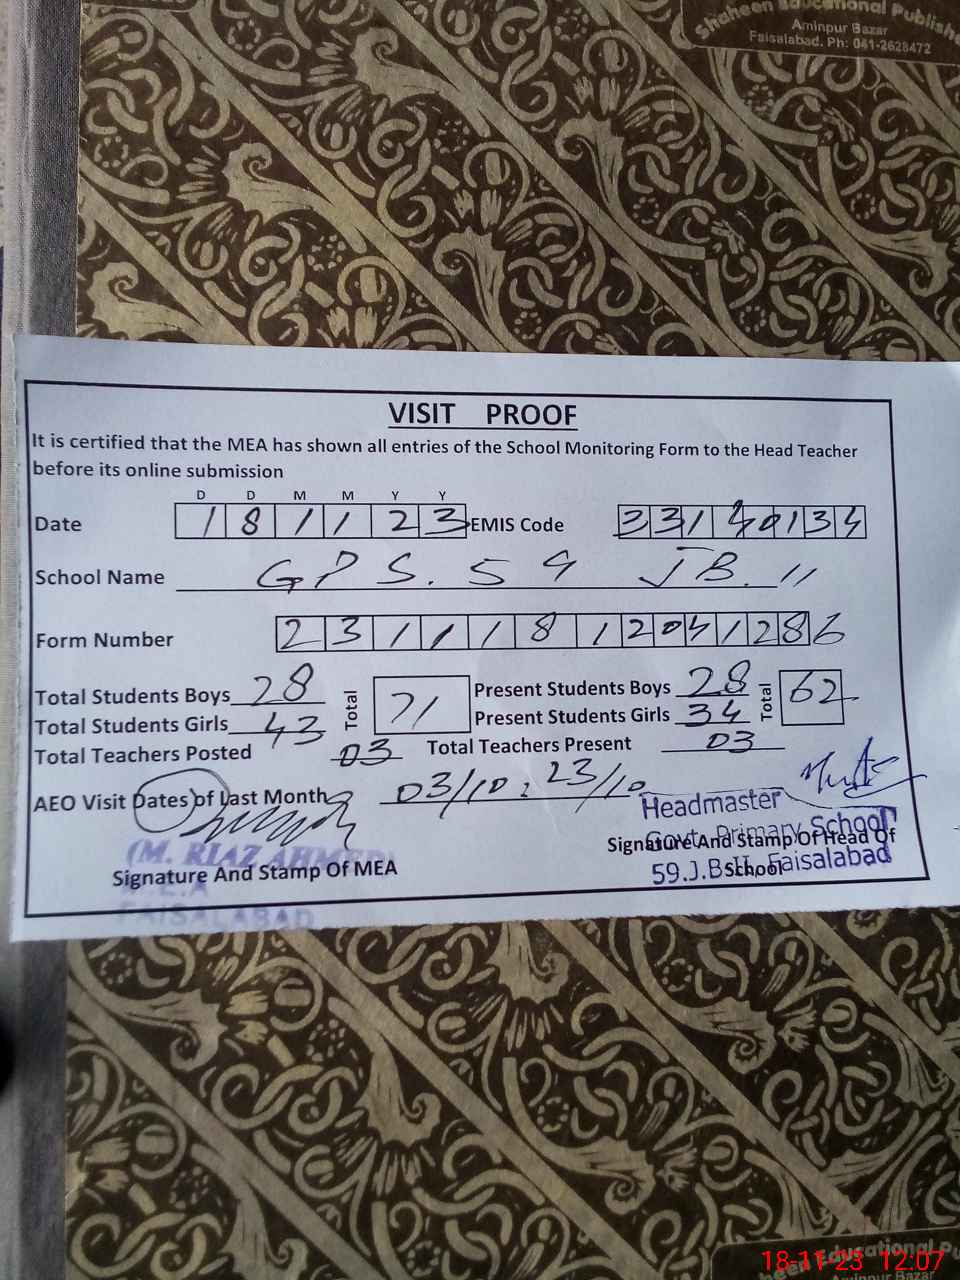 Shaheen Educational Publishe
Aminpur Bazar
Faisalabad. Ph: 041-2628472
VISIT PROOF
It is certified that the MEA has shown all entries of the School Monitoring Form to the Head Teacher
before its online submission
D D M M Y Y
Date 18 11 23 EMIS Code 33140134
School Name GPS. 59 JB. II
Form Number 23111812041286
Total Students Boys 28 Total 71 Present Students Boys 28 Total 62
Total Students Girls 43 Present Students Girls 34
Total Teachers Posted 03 Total Teachers Present 03
AEO Visit Dates of Last Month 03/10, 23/10
Headmaster
Govt. Primary School
Signature And Stamp Of Head Of
School
59.J.B II, Faisalabad
(M. RIAZ AHMED)
Signature And Stamp Of MEA
M.E.A
FAISALABAD
18-11-23 12:07
een Educational Pu
Aminpur Bazar